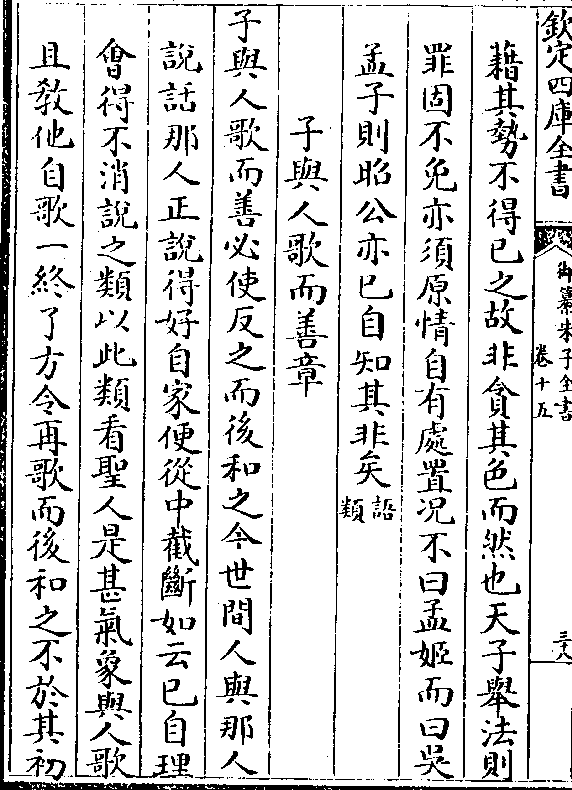 欽定四庫全書
御纂朱子全書
卷十五
三六
藉其勢不得已之故非貪其色而然也天子舉法則
罪固不免亦須原情自有處置况不曰孟姬而曰吳
孟子則昭公亦已自知其非矣語類
子與人歌而善章
子與人歌而善必使反之而後和之今世間人與那人
說話那人正說得好自家便從中截斷如云已自理
會得不消說之類以此類看聖人是甚氣象與人歌
且教他自歌一終了方令再歌而後和之不於其初